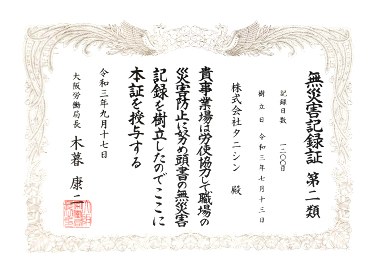 無災害記録証 第二類
記録日数 一二〇〇日
樹立日 令和三年七月十三日
株式会社タニシン 殿
貴事業場は労使協力して職場の
災害防止に努め頭書の無災害
記録を樹立したのでここに
本証を授与する
令和三年九月十七日
大阪労働局長 木暮 康二